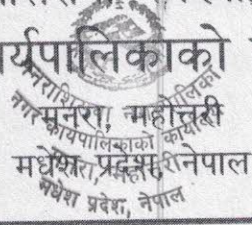 र्यपालिकाको
मनरा, महोत्तरी
मधेश प्रदेश, नेपाल
नगर कार्यपालिकाको कार्यालय
मधेश प्रदेश, नेपाल